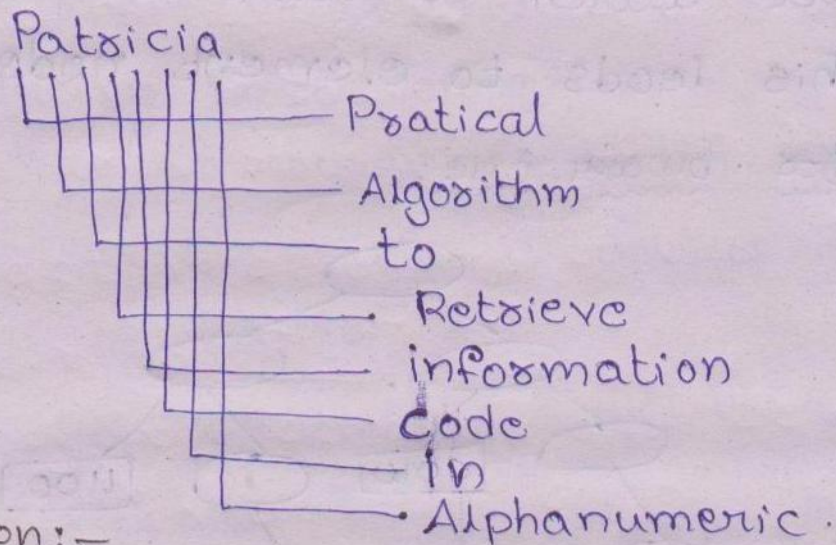 Patricia
Pratical
Algorithm
to
Retrieve
information
Code
In
Alphanumeric.